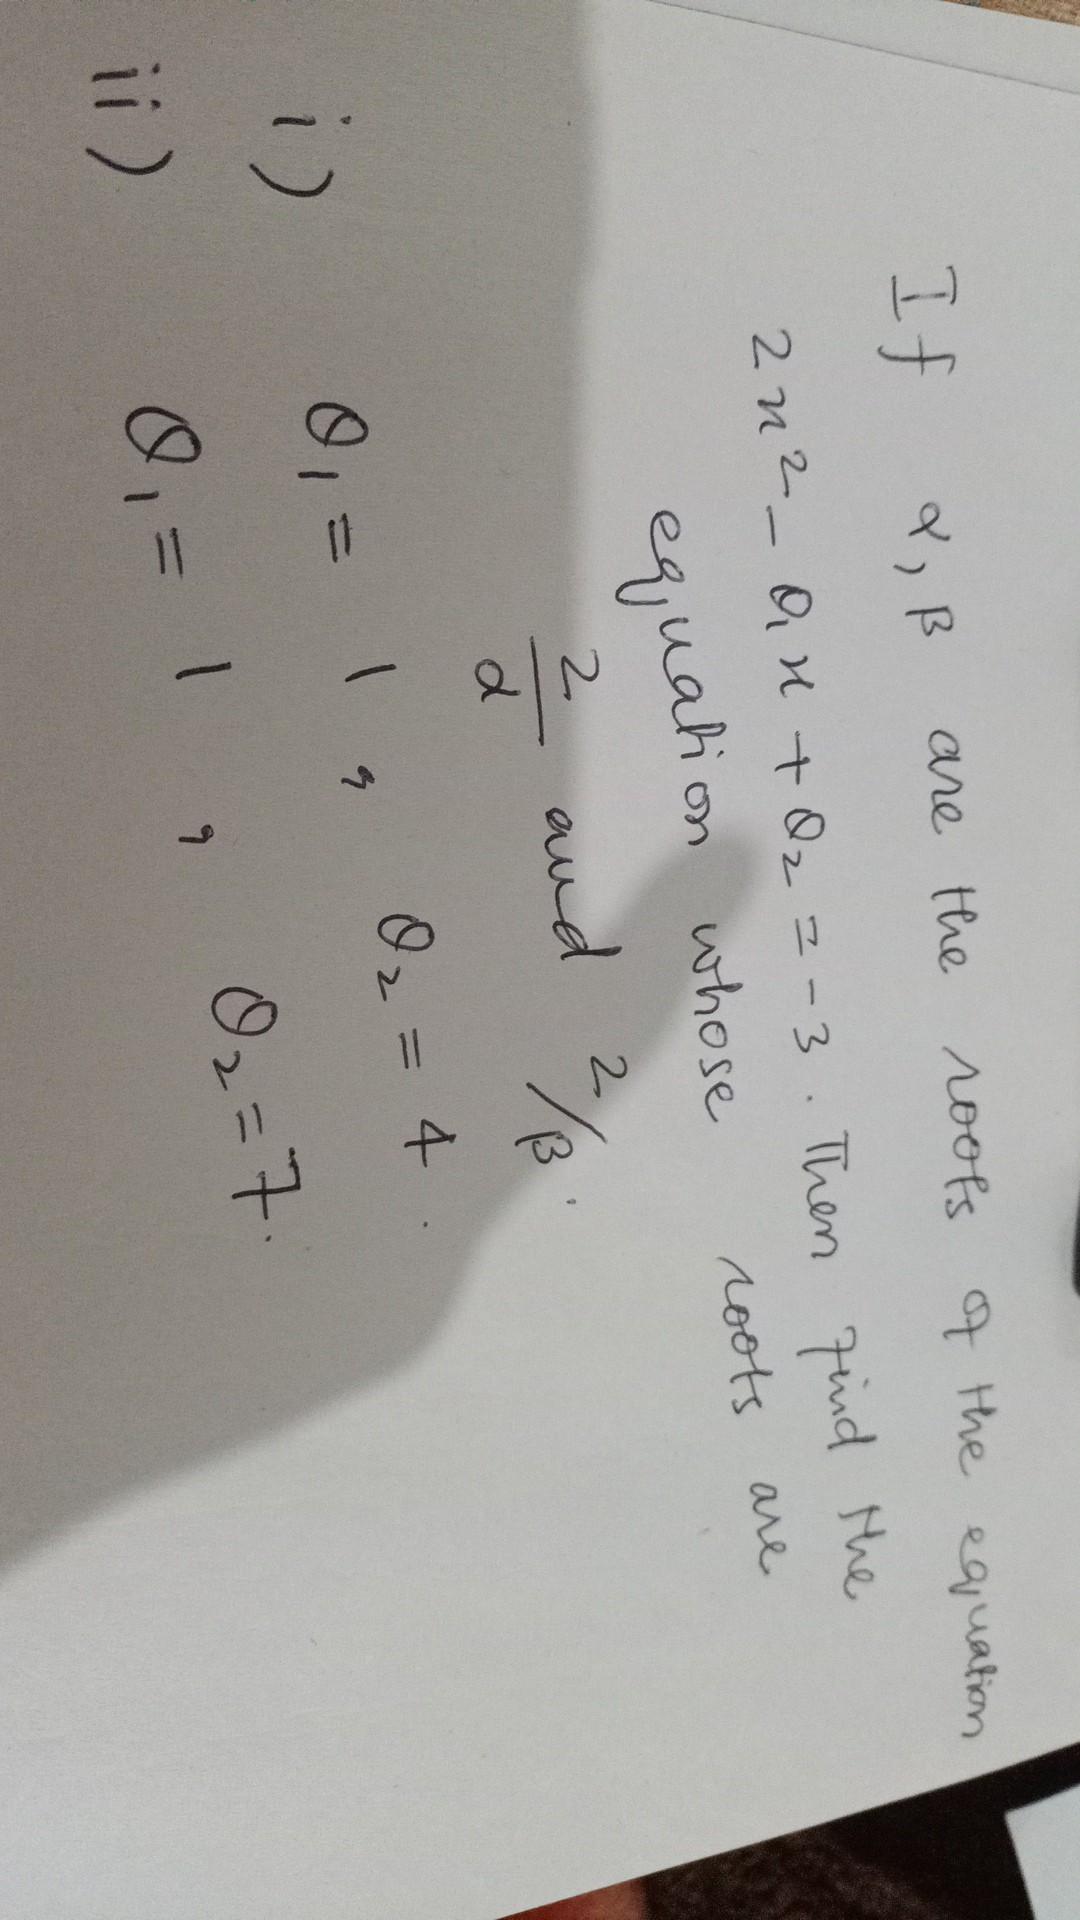 If α, β are the roots of the equation
2x² - θ₁x + θ₂ = -3. Then find the
equation whose roots are
2/α and 2/β.
i) θ₁ = 1, θ₂ = 4.
ii) θ₁ = 1, θ₂ = 7.